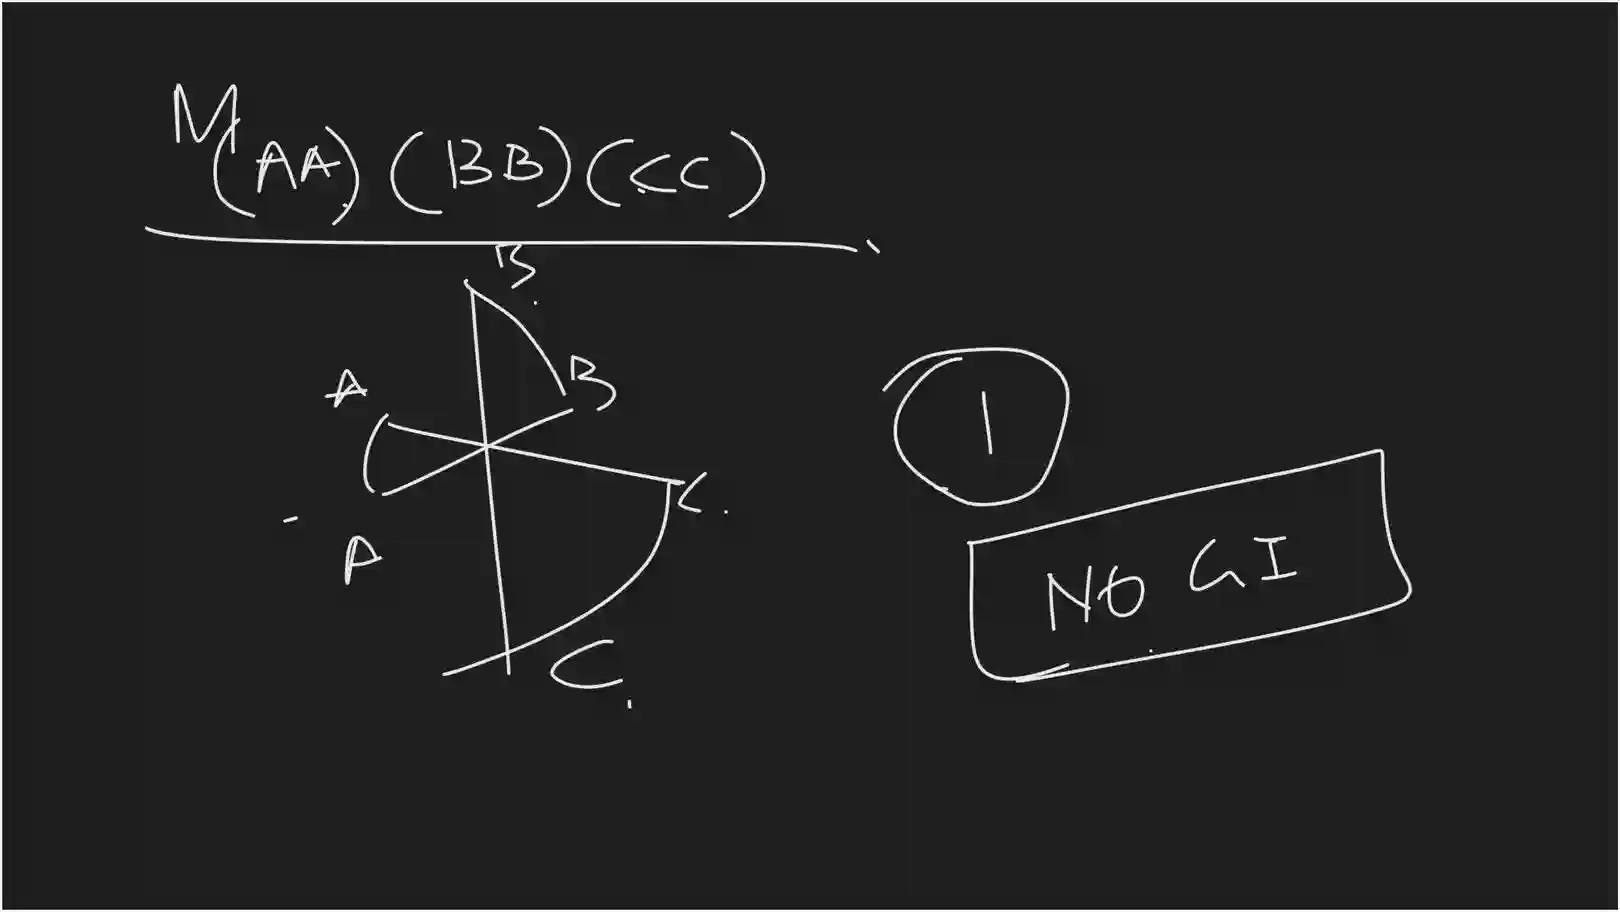 M
(AA) (BB) (CC)
B
A
B
C
A
C
1
NO GI